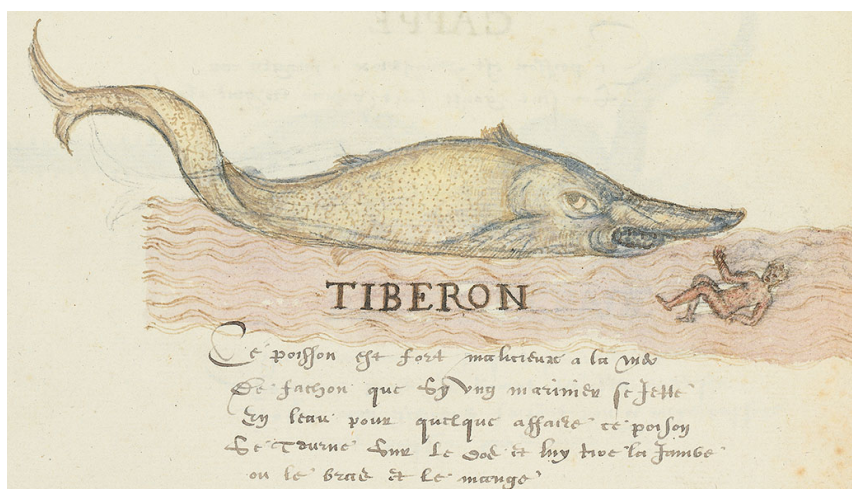 TIBERON
Ce poisson est fort malicieux a la mer
De fachon que sy ung marinier se Jette
En leau pour quelque affaire ce poison
Se Tourne Sur le dos et luy tire la Jambe
ou le bras et le mange